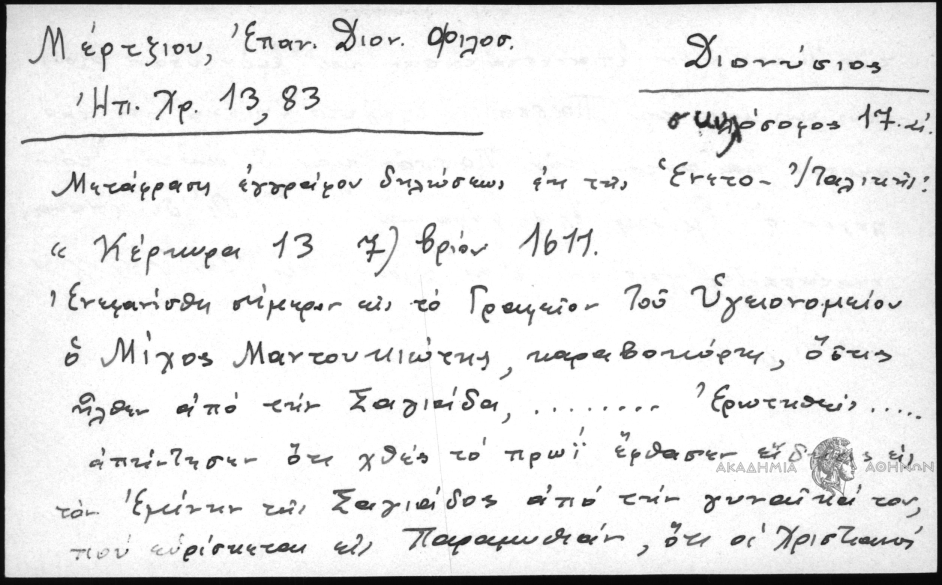 Μέρτζιου, Ἐπαν. Διον. Φιλοσ.
Ἠπ. Χρ. 13, 83
Διονύσιος
σκυλόσοφος 17. αἰ.
Μετάφραση ἐγγράφου δηλώσεως ἐκ τῆς Ἑνετο-Ἰταλικῆς:
« Κέρκυρα 13 7)βρίου 1611.
Ἐνεφανίσθη σήμερον εἰς τὸ Γραφεῖον τοῦ Ὑγειονομείου
ὁ Μίχος Μαντουκιώτης, καραβοκύρης, ὅστις
ἦλθεν ἀπό τήν Σαγιάδα, ........ Ἐρωτηθείς .....
ἀπήντησεν ὅτι χθές τό πρωΐ ἔφθασεν εἴδησις εἰς
τὸν Ἐμίνην τῆς Σαγιάδος ἀπό τήν γυναῖκά του,
πού εὑρίσκεται εἰς Παραμυθιάν, ὅτι οἱ Χριστιανοί
ΑΚΑΔΗΜΙΑ ΑΘΗΝΩΝ